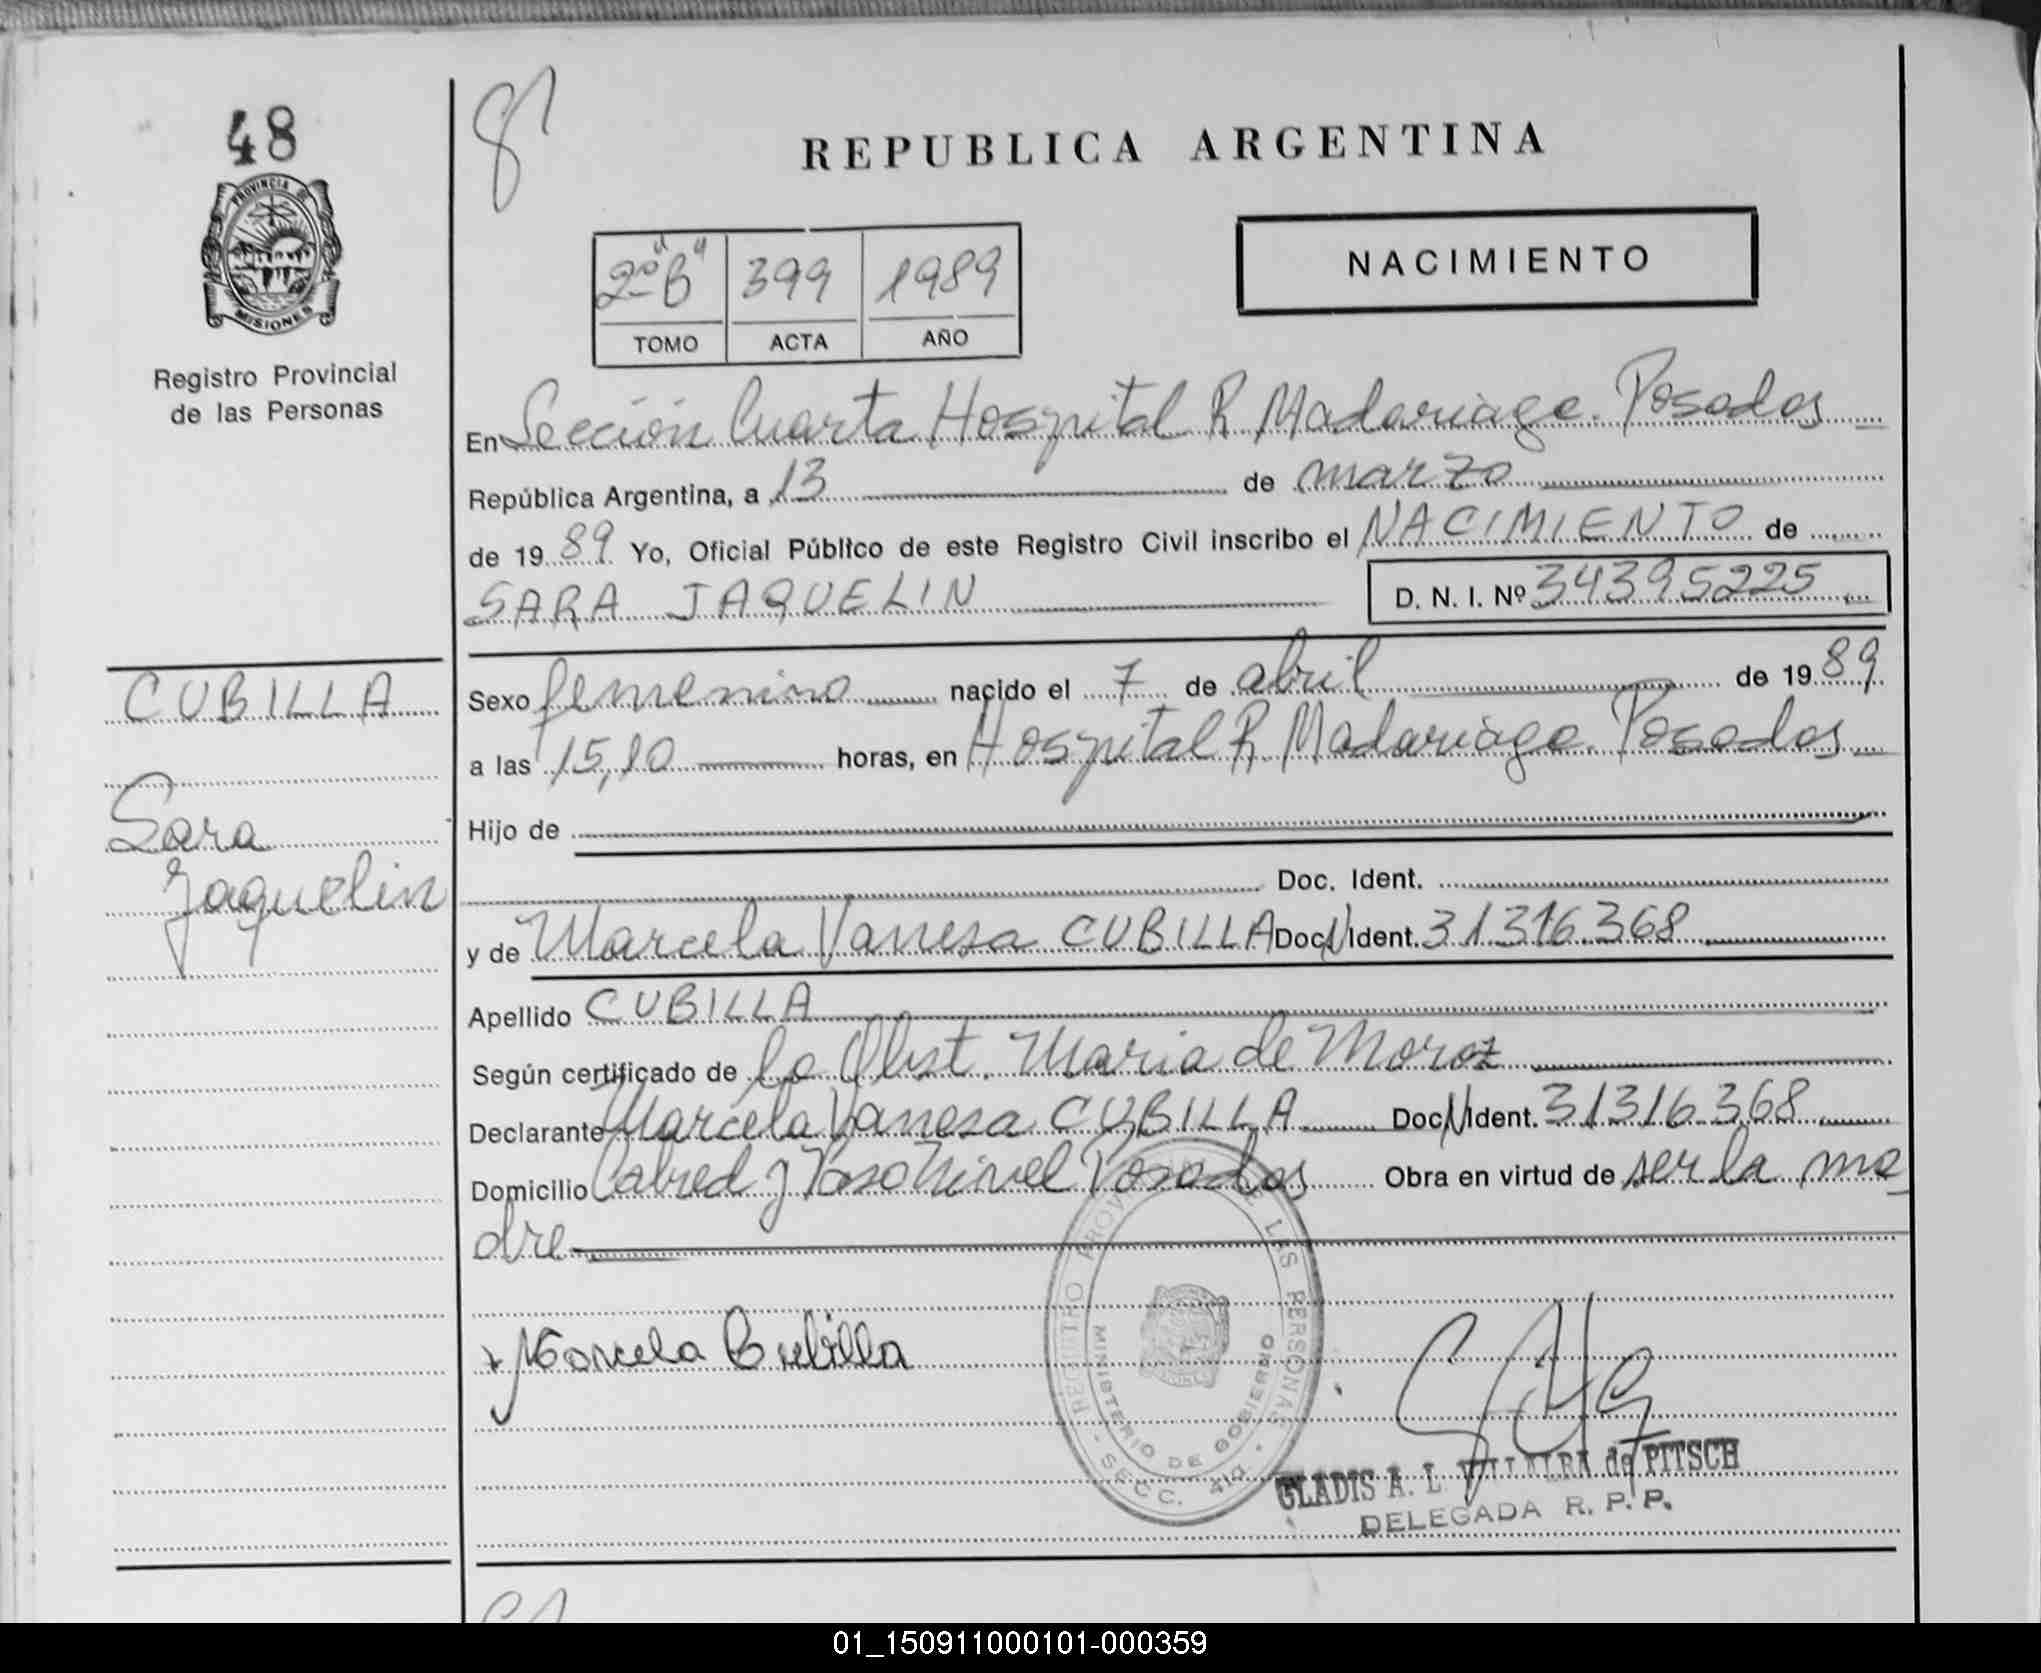 48
PROVINCIA DE
MISIONES
Registro Provincial
de las Personas
REPUBLICA ARGENTINA
2º "B" 399 1989
TOMO ACTA AÑO
NACIMIENTO
En Sección Cuarta Hospital R Madariaga. Posadas
República Argentina, a 13 de marzo
de 1989 Yo, Oficial Público de este Registro Civil inscribo el NACIMIENTO de
SARA JAQUELIN D. N. I. Nº 34395225
CUBILLA
Sara
Jaquelin
Sexo femenino nacido el 7 de abril de 1989
a las 15,10 horas, en Hospital R Madariaga. Posadas
Hijo de
Doc. Ident.
y de Marcela Vanesa CUBILLA Doc N Ident. 31316.368
Apellido CUBILLA
Según certificado de la Obst. Maria de Moroz
Declarante Marcela Vanesa CUBILLA Doc N Ident. 31316.368
Domicilio Cabred y Posadas Obra en virtud de ser la ma
dre
REGISTRO PROVINCIAL DE LAS PERSONAS
MINISTERIO DE GOBIERNO
SECC. 4ta.
Marcela Cubilla
GLADIS A. L. de PITSCH
DELEGADA R. P. P.
01_150911000101-000359